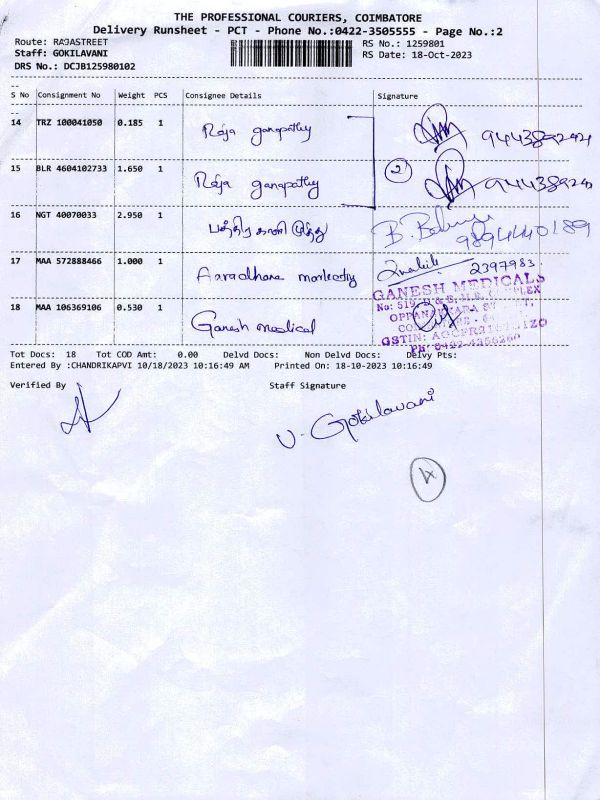 THE PROFESSIONAL COURIERS, COIMBATORE
Delivery Runsheet - PCT - Phone No.:0422-3505555 - Page No.:2
Route: RAJASTREET
RS No.: 1259801
Staff: GOKILAVANI
RS Date: 18-Oct-2023
DRS No.: DCJB125980102
S No Consignment No Weight PCS Consignee Details Signature
14 TRZ 100041050 0.185 1 Raja ganapathy
15 BLR 4604102733 1.650 1 Raja ganapathy 2
16 NGT 40070033 2.950 1 பத்திர காளி முத்து 9894440189
17 MAA 572888466 1.000 1 Aaradhana 2397983
18 MAA 106369106 0.530 1 Ganesh medical
GANESH MEDICALS
Tot Docs: 18 Tot COD Amt: 0.00 Delvd Docs: Non Delvd Docs: Delvy Pts:
Entered By :CHANDRIKAPVI 10/18/2023 10:16:49 AM Printed On: 18-10-2023 10:16:49
Verified By Staff Signature
V. Gokilavani